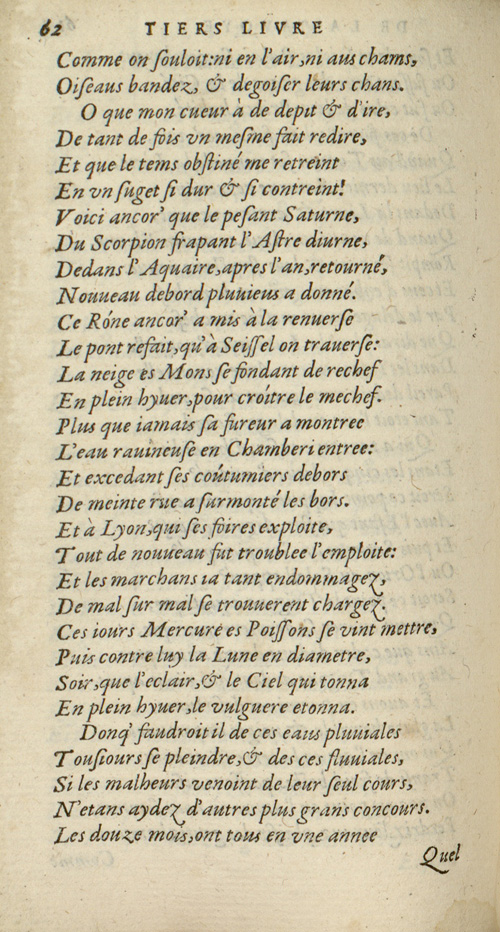 62 TIERS LIVRE
Comme on ſouloit:ni en l'air,ni aus chams,
Oiſeaus bandez, & degoiſer leurs chans.
O que mon cueur à de depit & d'ire,
De tant de fois vn meſme fait redire,
Et que le tems obſtiné me retreint
En vn ſuget ſi dur & ſi contreint!
Voici ancor' que le peſant Saturne,
Du Scorpion frapant l'Aſtre diurne,
Dedans l'Aquaire,apres l'an,retourné,
Nouueau debord pluuieus a donné.
Ce Róne ancor' a mis à la renuerſe
Le pont refait,qu'à Seiſſel on trauerſe:
La neige es Mons ſe fondant de rechef
En plein hyuer,pour croítre le mechef.
Plus que iamais ſa fureur a montree
L'eau rauineuſe en Chamberi entree:
Et excedant ſes coútumiers debors
De meinte rue a ſurmonté les bors.
Et à Lyon,qui ſes foires exploite,
Tout de nouueau fut troublee l'emploite:
Et les marchans ia tant endommagez,
De mal ſur mal ſe trouuerent chargez.
Ces iours Mercure es Poiſſons ſe vint mettre,
Puis contre luy la Lune en diametre,
Soir,que l'eclair,& le Ciel qui tonna
En plein hyuer,le vulguere etonna.
Donq' faudroit il de ces eaus pluuiales
Touſiours ſe pleindre,& des ces fluuiales,
Si les malheurs venoint de leur ſeul cours,
N'etans aydez d'autres plus grans concours.
Les douze mois,ont tous en vne annee
Quel